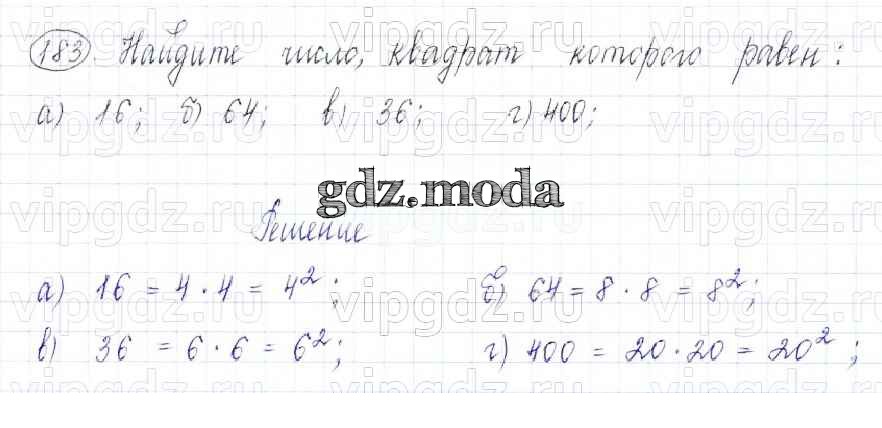 183. Найдите число, квадрат которого равен:
а) 16; б) 64; в) 36; г) 400;
gdz.moda
Решение
а) 16 = 4 · 4 = 4²; б) 64 = 8 · 8 = 8²;
в) 36 = 6 · 6 = 6²; г) 400 = 20 · 20 = 20²;
vipgdz.ru